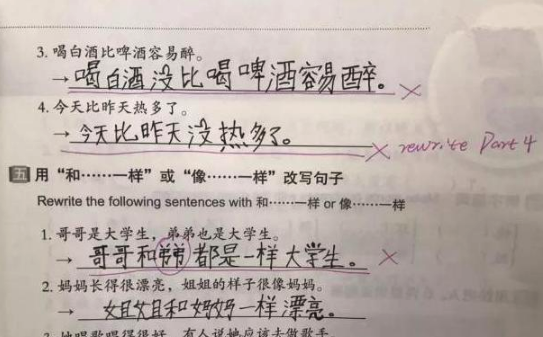 3. 喝白酒比啤酒容易醉。
→喝白酒没比喝啤酒容易醉。 ×
4. 今天比昨天热多了。
→今天比昨天没热多了。 × rewrite Part 4
五 用“和……一样”或“像……一样”改写句子
Rewrite the following sentences with 和……一样 or 像……一样
1. 哥哥是大学生，弟弟也是大学生。
→哥哥和弟弟都是一样大学生。 ×
2. 妈妈长得很漂亮，姐姐的样子很像妈妈。
→姐姐和妈妈一样漂亮。
3. 她唱歌唱得很好，有人说她应该去做歌手。